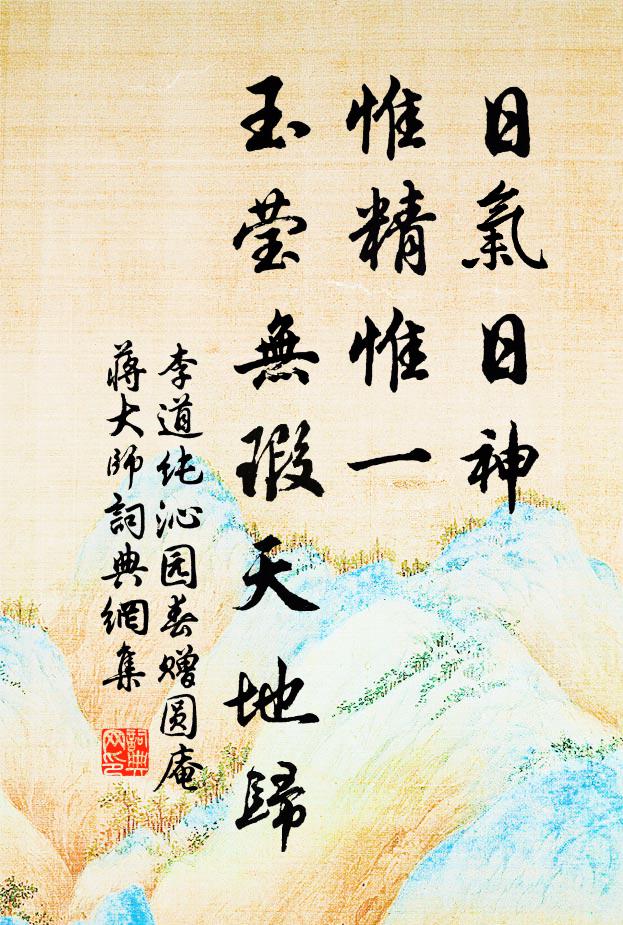 日氣日神
惟精惟一
玉莹無瑕天地歸
李道纯沁园春赠圆庵
蔣大师詞典網集